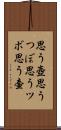 思う壺思う
つぼ思うツ
ボ思う壷